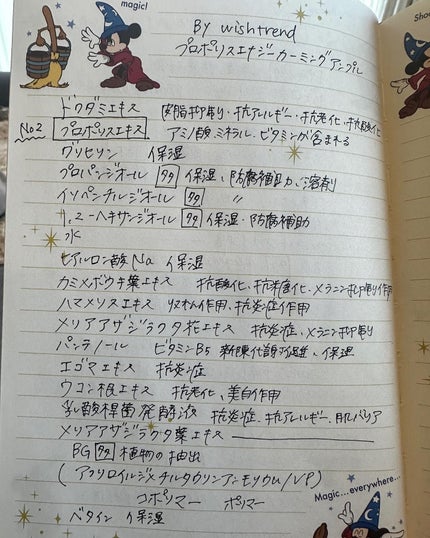 magic!
Sho
By wishtrend
プロポリスエナジーカーミングアンプル
ドクダミエキス 皮脂抑制・抗アレルギー・抗老化・抗酸化
No2 プロポリスエキス アミノ酸、ミネラル、ビタミンが含まれる
グリセリン 保湿
プロパンジオール 多 保湿、防腐補助、溶剤
イソペンチルジオール 多 〃
1,2-ヘキサンジオール 多 保湿・防腐補助
水
ヒアルロン酸Na 保湿
カミメボウキ葉エキス 抗酸化、抗糖化、メラニン抑制作用
ハマメリスエキス 収れん作用、抗炎症作用
メリアアザジラクタ花エキス 抗炎症、メラニン抑制
パンテノール ビタミンB5 新陳代謝促進、保湿
エゴマエキス 抗炎症
ウコン根エキス 抗老化、美白作用
乳酸桿菌発酵液 抗炎症、抗アレルギー、肌バリア
メリアアザジラクタ葉エキス
BG 多 植物の抽出
(アクリロイルジメチルタウリンアンモリウム/VP)
コポリマー ポリマー
ベタイン 保湿
Magic...everywhere...